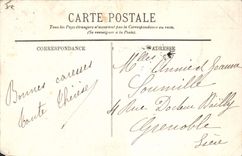 CARTE POSTALE
Tous les Pays étrangers n'acceptent pas la Correspondance au recto.
(Se renseigner à la Poste)
CORRESPONDANCE
ADRESSE
Bonnes caresses
tante Thérèse
Mlles Annie et Jeanne
4 Rue Docteur Bailly
Grenoble
Isère